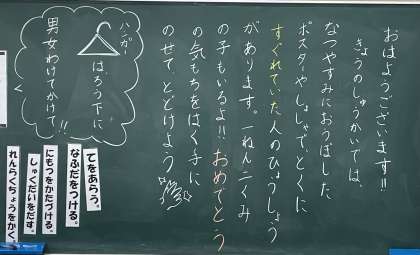 おはようございます!!
きょうのしゅうかいでは、
なつやすみにおうぼした
ポスターやしゃしんでとくに
すぐれていた人のひょうしょう
があります。一ねん二くみ
の子もいるよ!!おめでとう
の気もちをはく手に
のせて、とどけよう
ハンガー
は、ろう下に
男女わけてかけて!!
てをあらう。
なふだをつける。
にもつをかたづける。
しゅくだいをだす。
れんらくちょうをかく。